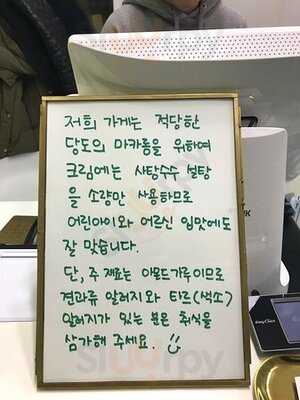 저희 가게는 적당한
당도의 마카롱을 위하여
크림에는 사탕수수 설탕
을 소량만 사용하므로
어린아이와 어르신 입맛에도
잘 맞습니다.
단, 주 재료는 아몬드가루이므로
견과류 알러지와 타르(색소)
알러지가 있는 분은 취식을
삼가해 주세요.